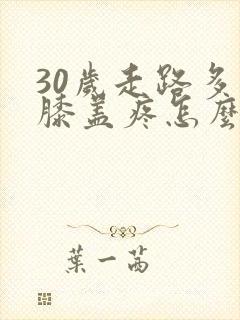 30歲走路多
膝盖疼怎麼
葉一茜